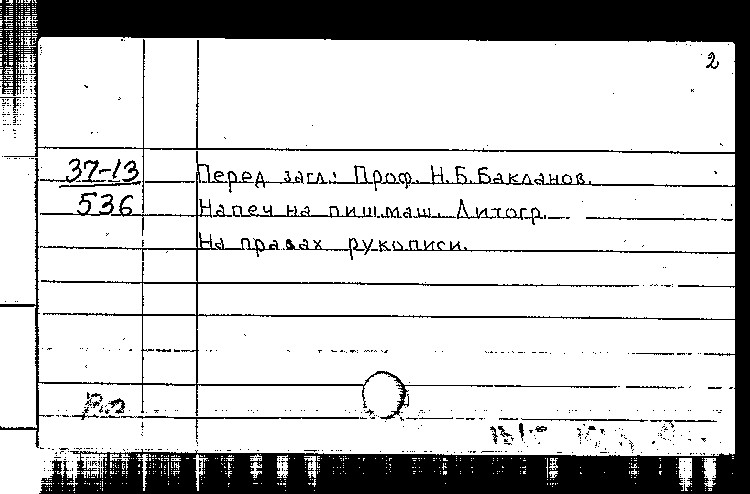 2
37-13 Перед загл.: Проф. Н.Б.Бакланов.
536 Напеч на пиш.маш. Литогр.
На правах рукописи.